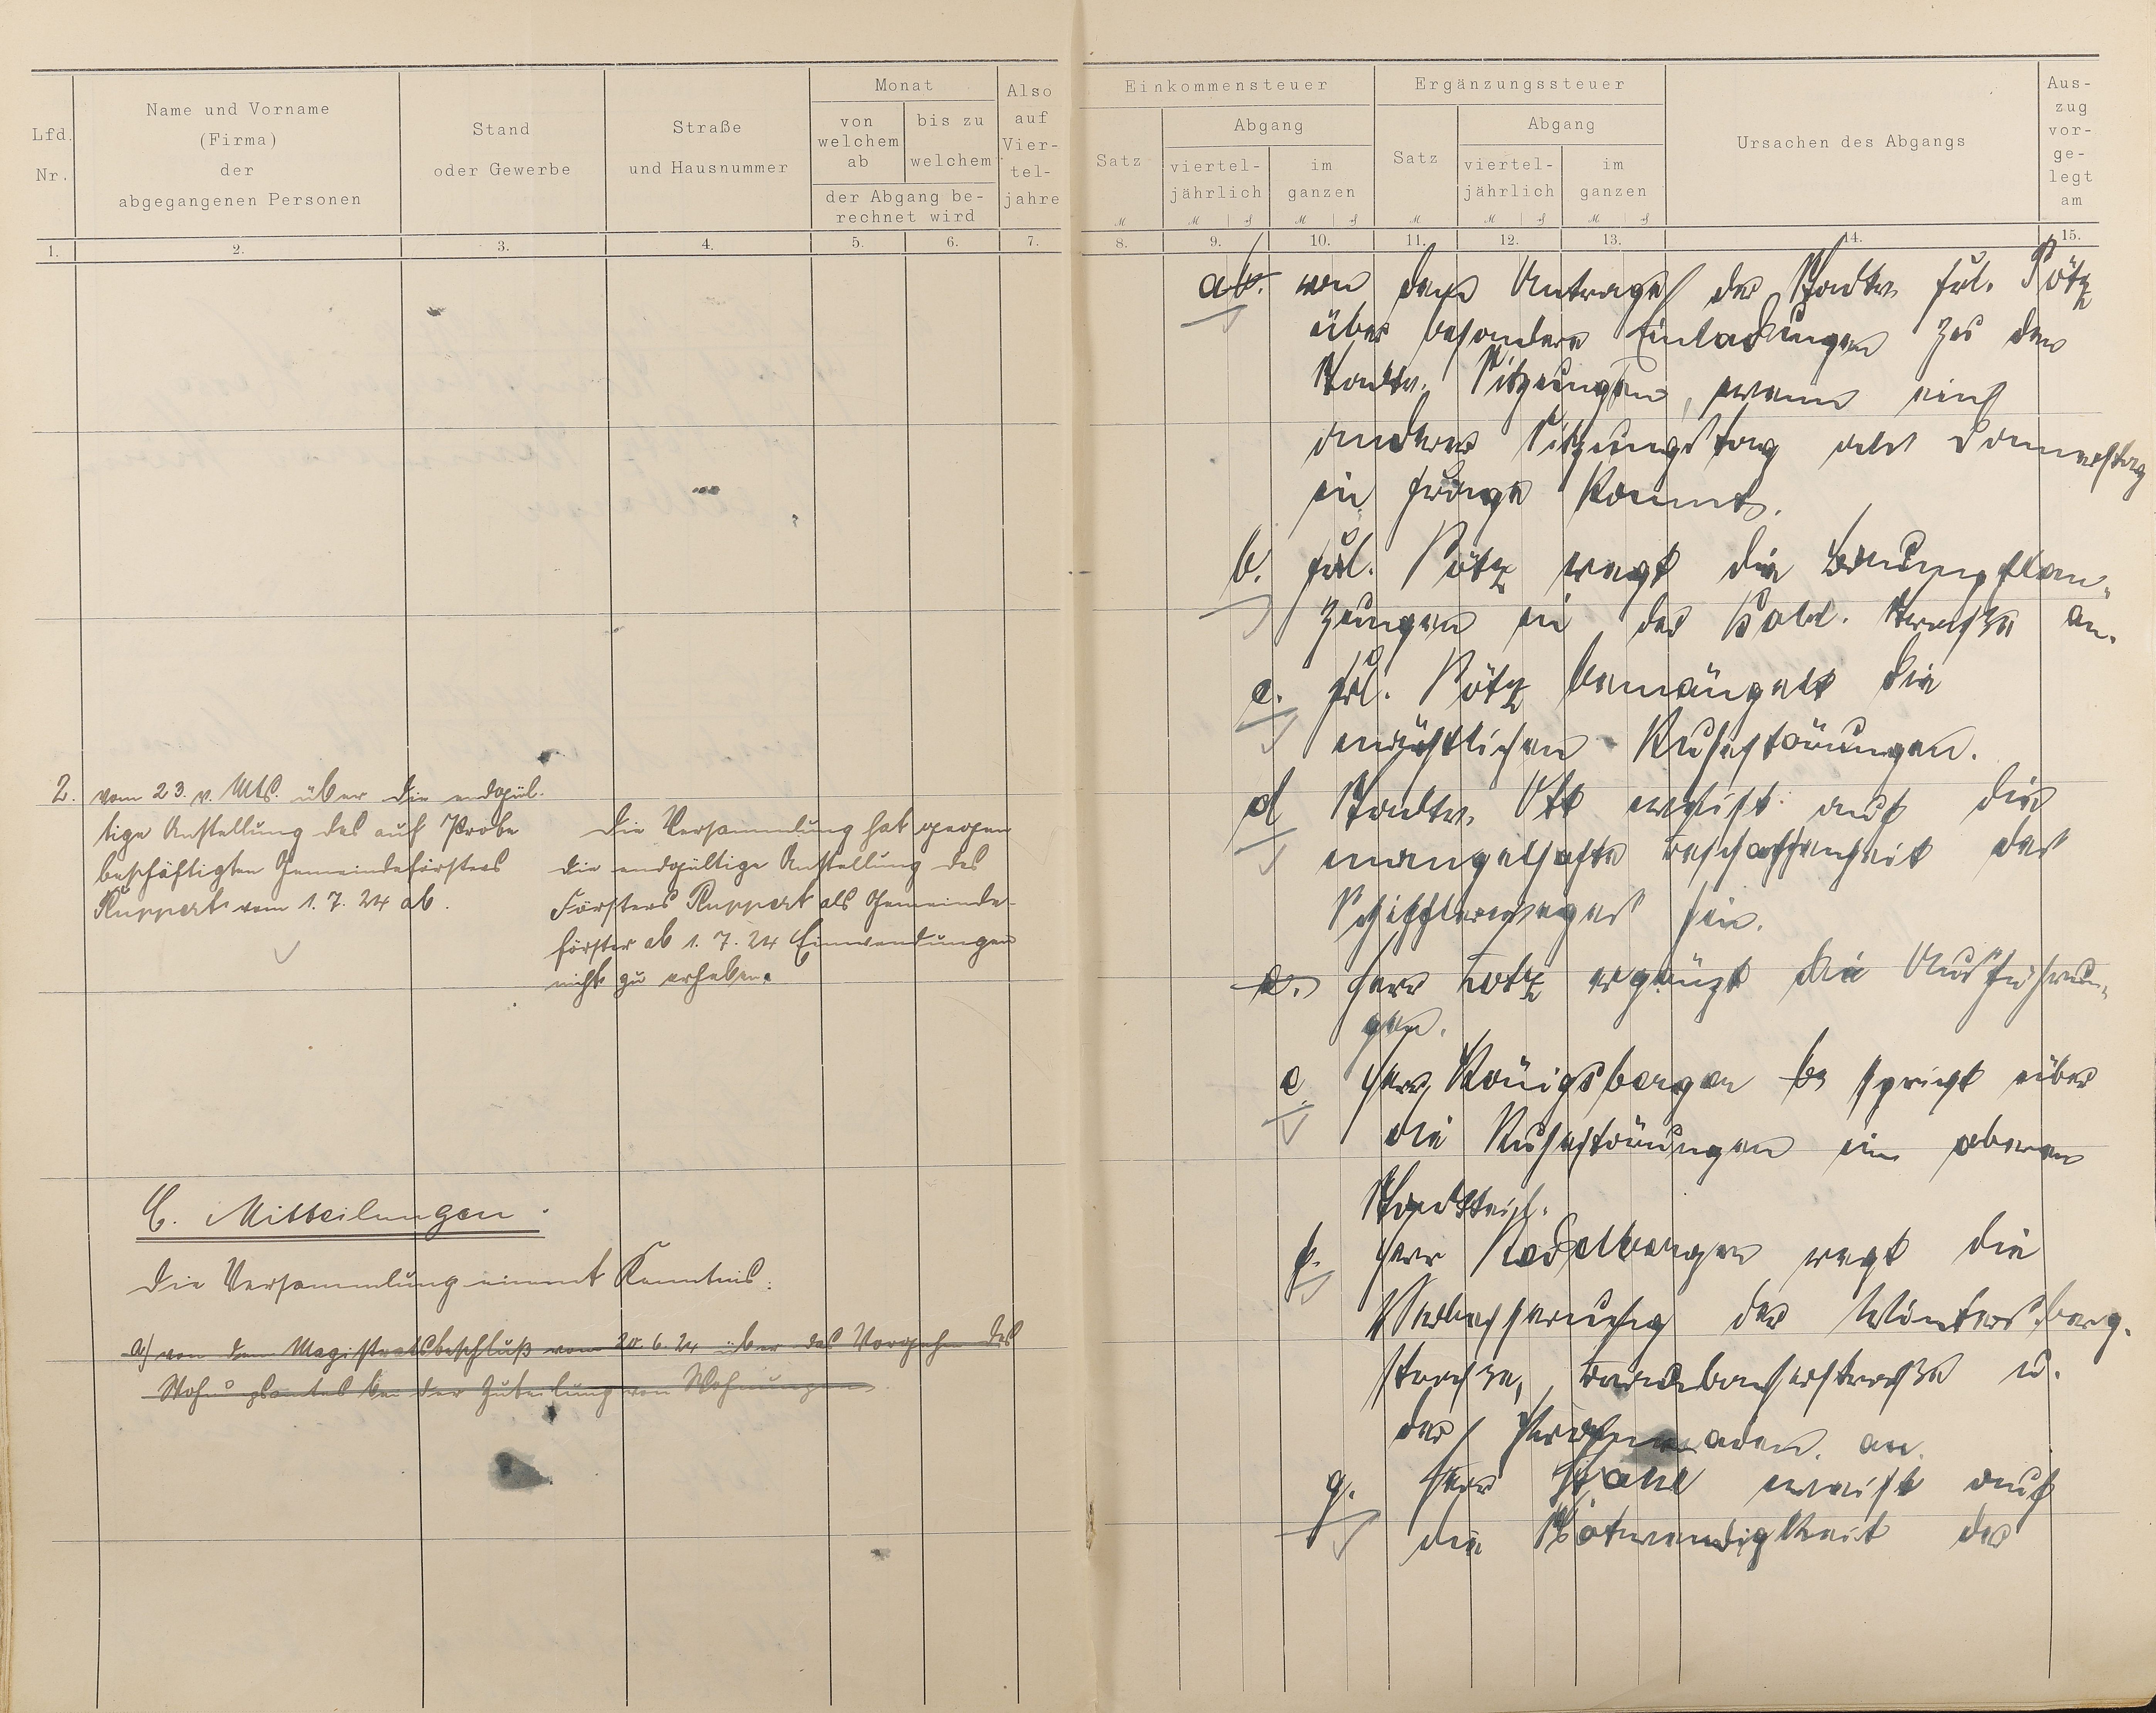 Lfd. Nr.
Name und Vorname
(Firma)
der
abgegangenen Personen
Stand
oder Gewerbe
Straße
und Hausnummer
Monat
von welchem ab
bis zu welchem
der Abgang be-
rechnet wird
Also auf Vier-tel-jahre
Einkommensteuer
Satz
Abgang
viertel-jährlich
im ganzen
Ergänzungssteuer
Satz
Abgang
viertel-jährlich
im ganzen
Ursachen des Abgangs
Aus-zug vor-ge-legt am
1. 2. 3. 4. 5. 6. 7.
8. 9. 10. 11. 12. 13. 14. 15.
2. vom 23. v. Mts. über die endgül-
tige Anstellung des auf Probe
beschäftigten Gemeindeförsters
Ruppert vom 1.7.24 ab.
Die Versammlung hat gegen
die endgültige Anstellung des
Försters Ruppert als Gemeinde-
förster ab 1.7.24 Einwendungen
nicht zu erheben.
C. Mitteilungen.
Die Versammlung nimmt Kenntnis:
a) von dem Magistratsbeschluß vom 20.6.24 über das Vorgehen des
Wohngsamtes bei der Zuteilung von Wohnungen
ab. von dem Antrage der Stadtv. Frl. Götz
über besondere Einladungen zu den
Stadtv. Sitzungen, wenn ein
anderer Sitzungstag als Donnerstag
in Frage kommt.
b. Frl. Götz regt die Baumpflan-
zungen in der Straße an.
c. Frl. Götz bemängelt die
nächtlichen Ruhestörungen.
d Stadtv. Ott weist auf die
mangelhafte Beschaffenheit des
hin.
e. Herr Lotz ergänzt die Ausführun-
gen.
e. Herr Königsberger be spricht über
die Ruhestörungen im oberen
Stadtteil.
f. Herr regt die
Verbesserung der Wintersberg-
straße, u.
der Promenaden an.
g. Herr weist auf
die Notwendigkeit der